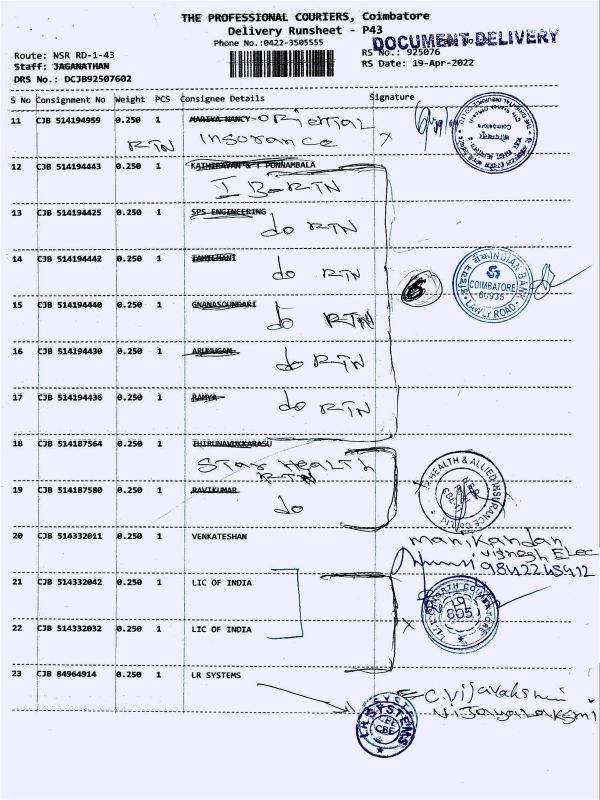 THE PROFESSIONAL COURIERS, Coimbatore
Delivery Runsheet - P43
Phone No.:0422-3505555
DOCUMENT DELIVERY
Route: NSR RD-1-43
RS No.: 925076
Staff: JAGANATHAN
RS Date: 19-Apr-2022
DRS No.: DCJB92507602
S No Consignment No Weight PCS Consignee Details Signature
11 CJB 514194959 0.250 1 MARIYA NANCY Oriental
RTN Insurance
12 CJB 514194443 0.250 1 KATHIRAVAN & T PONNAMBALA
I B-RTN
13 CJB 514194425 0.250 1 SPS ENGINEERING
do RTN
14 CJB 514194442 0.250 1 TAMILMANI
do RTN
6
INDIAN BANK
COIMBATORE
LAWLY ROAD
15 CJB 514194440 0.250 1 GNANASOUNDARI
do RTN
16 CJB 514194430 0.250 1 ARUMUGAM
do RTN
17 CJB 514194436 0.250 1 RAMYA
do RTN
18 CJB 514187564 0.250 1 THIRUNAVUKKARASU
Star Health
RTN
HEALTH & ALLIED INSURANCE CO. LTD
19 CJB 514187580 0.250 1 RAVIKUMAR
do
20 CJB 514332011 0.250 1 VENKATESHAN
manikandan
vignesh Elec
9842245912
21 CJB 514332042 0.250 1 LIC OF INDIA
22 CJB 514332032 0.250 1 LIC OF INDIA
23 CJB 84964914 0.250 1 LR SYSTEMS
C.Vijayalakshmi
LR SYSTEMS
CBE